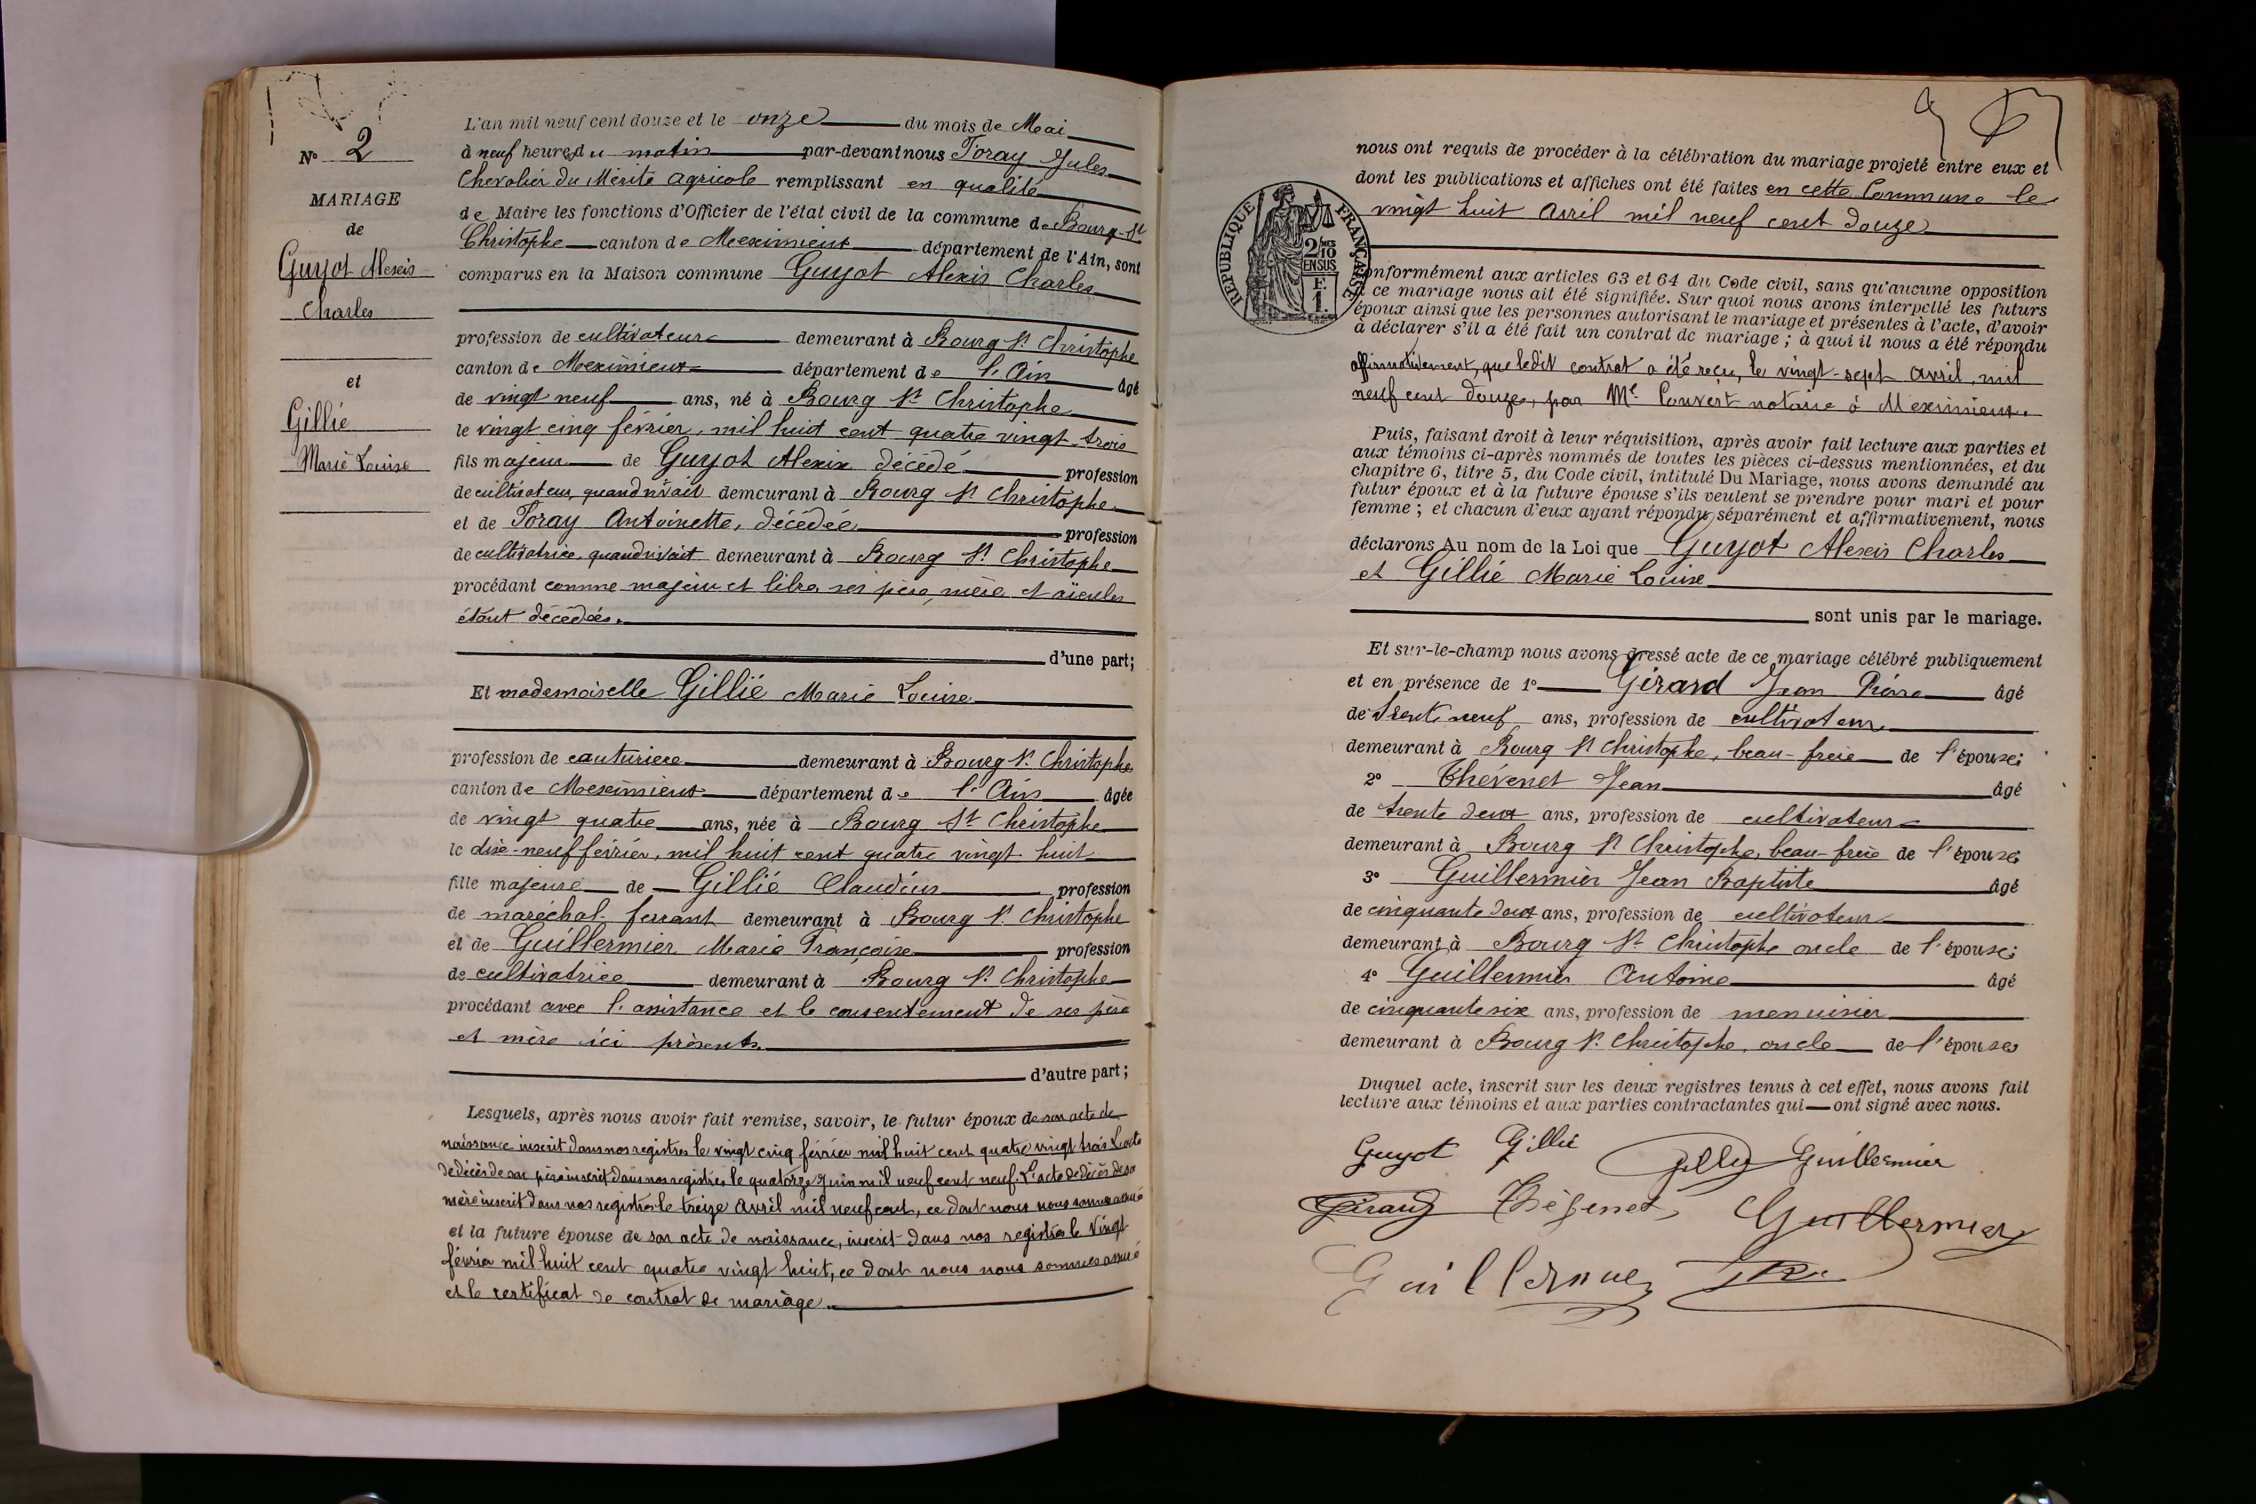 N° 2
MARIAGE
de
Guyot Alexis
Charles
et
Gillié
Marie Louise
L'an mil neuf cent douze et le onze du mois de Mai
à neuf heures du matin par-devant nous Toray Jules
Chevalier du Mérite agricole remplissant en qualité
de Maire les fonctions d'Officier de l'état civil de la commune de Bourg-St
Christophe canton de Meximieux département de l'Ain, sont
comparus en la Maison commune Guyot Alexis Charles
profession de cultivateur demeurant à Bourg St Christophe
canton de Meximieux département de l'Ain âgé
de vingt neuf ans, né à Bourg St Christophe
le vingt cinq février, mil huit cent quatre vingt trois
fils majeur de Guyot Alexis décédé profession
de cultivateur, quand vivait demeurant à Bourg St Christophe
et de Toray Antoinette, décédée, profession
de cultivatrice, quand vivait demeurant à Bourg St Christophe
procédant comme majeur et libre, ses père, mère et aïeules
étant décédés.
d'une part;
Et mademoiselle Gillié Marie Louise
profession de couturiere demeurant à Bourg St Christophe
canton de Meximieux département de l'Ain âgée
de vingt quatre ans, née à Bourg St Christophe
le dix-neuf février, mil huit cent quatre vingt huit
fille majeure de Gillié Claudius profession
de maréchal-ferrant demeurant à Bourg St Christophe
et de Guillermier Marie Françoise profession
de cultivatrice demeurant à Bourg St Christophe
procédant avec l'assistance et le consentement de ses père
et mère ici présents.
d'autre part;
Lesquels, après nous avoir fait remise, savoir, le futur époux de son acte de
naissance inscrit dans nos registres le vingt cinq février mil huit cent quatre vingt trois L'acte
de décès de son père inscrit dans nos registres le quatorze Juin mil neuf cent neuf. L'acte de décès de sa
mère inscrit dans nos registres le treize Avril mil neuf cent, ce dont nous nous sommes assuré
et la future épouse de son acte de naissance, inscrit dans nos registres le Vingt
février mil huit cent quatre vingt huit, ce dont nous nous sommes assuré
et le certificat de contrat de mariage.
nous ont requis de procéder à la célébration du mariage projeté entre eux et
dont les publications et affiches ont été faites en cette Commune le
vingt huit avril mil neuf cent douze
RÉPUBLIQUE FRANÇAISE
2/10mes
EN SUS
F.
1.
conformément aux articles 63 et 64 du Code civil, sans qu'aucune opposition
à ce mariage nous ait été signifiée. Sur quoi nous avons interpellé les futurs
époux ainsi que les personnes autorisant le mariage et présentes à l'acte, d'avoir
à déclarer s'il a été fait un contrat de mariage; à quoi il nous a été répondu
affirmativement, que ledit contrat a été reçu, le vingt-sept Avril, mil
neuf cent douze, par Me Convert notaire à Meximieux.
Puis, faisant droit à leur réquisition, après avoir fait lecture aux parties et
aux témoins ci-après nommés de toutes les pièces ci-dessus mentionnées, et du
chapitre 6, titre 5, du Code civil, intitulé Du Mariage, nous avons demandé au
futur époux et à la future épouse s'ils veulent se prendre pour mari et pour
femme; et chacun d'eux ayant répondu séparément et affirmativement, nous
déclarons Au nom de la Loi que Guyot Alexis Charles
et Gillié Marie Louise
sont unis par le mariage.
Et sur-le-champ nous avons dressé acte de ce mariage célébré publiquement
et en présence de 1° Girard Jean Pierre âgé
de trente neuf ans, profession de cultivateur
demeurant à Bourg St Christophe, beau-frère de l'épouse;
2° Thévenet Jean âgé
de trente deux ans, profession de cultivateur
demeurant à Bourg St Christophe, beau-frère de l'épouse
3° Guillermier Jean Baptiste âgé
de cinquante deux ans, profession de cultivateur
demeurant à Bourg St Christophe oncle de l'épouse;
4° Guillermier Antoine âgé
de cinquante six ans, profession de menuisier
demeurant à Bourg St Christophe, oncle de l'épouse
Duquel acte, inscrit sur les deux registres tenus à cet effet, nous avons fait
lecture aux témoins et aux parties contractantes qui ont signé avec nous.
Guyot Gillié Guillermier
Girard Thévenet Guillermier
Guillermier